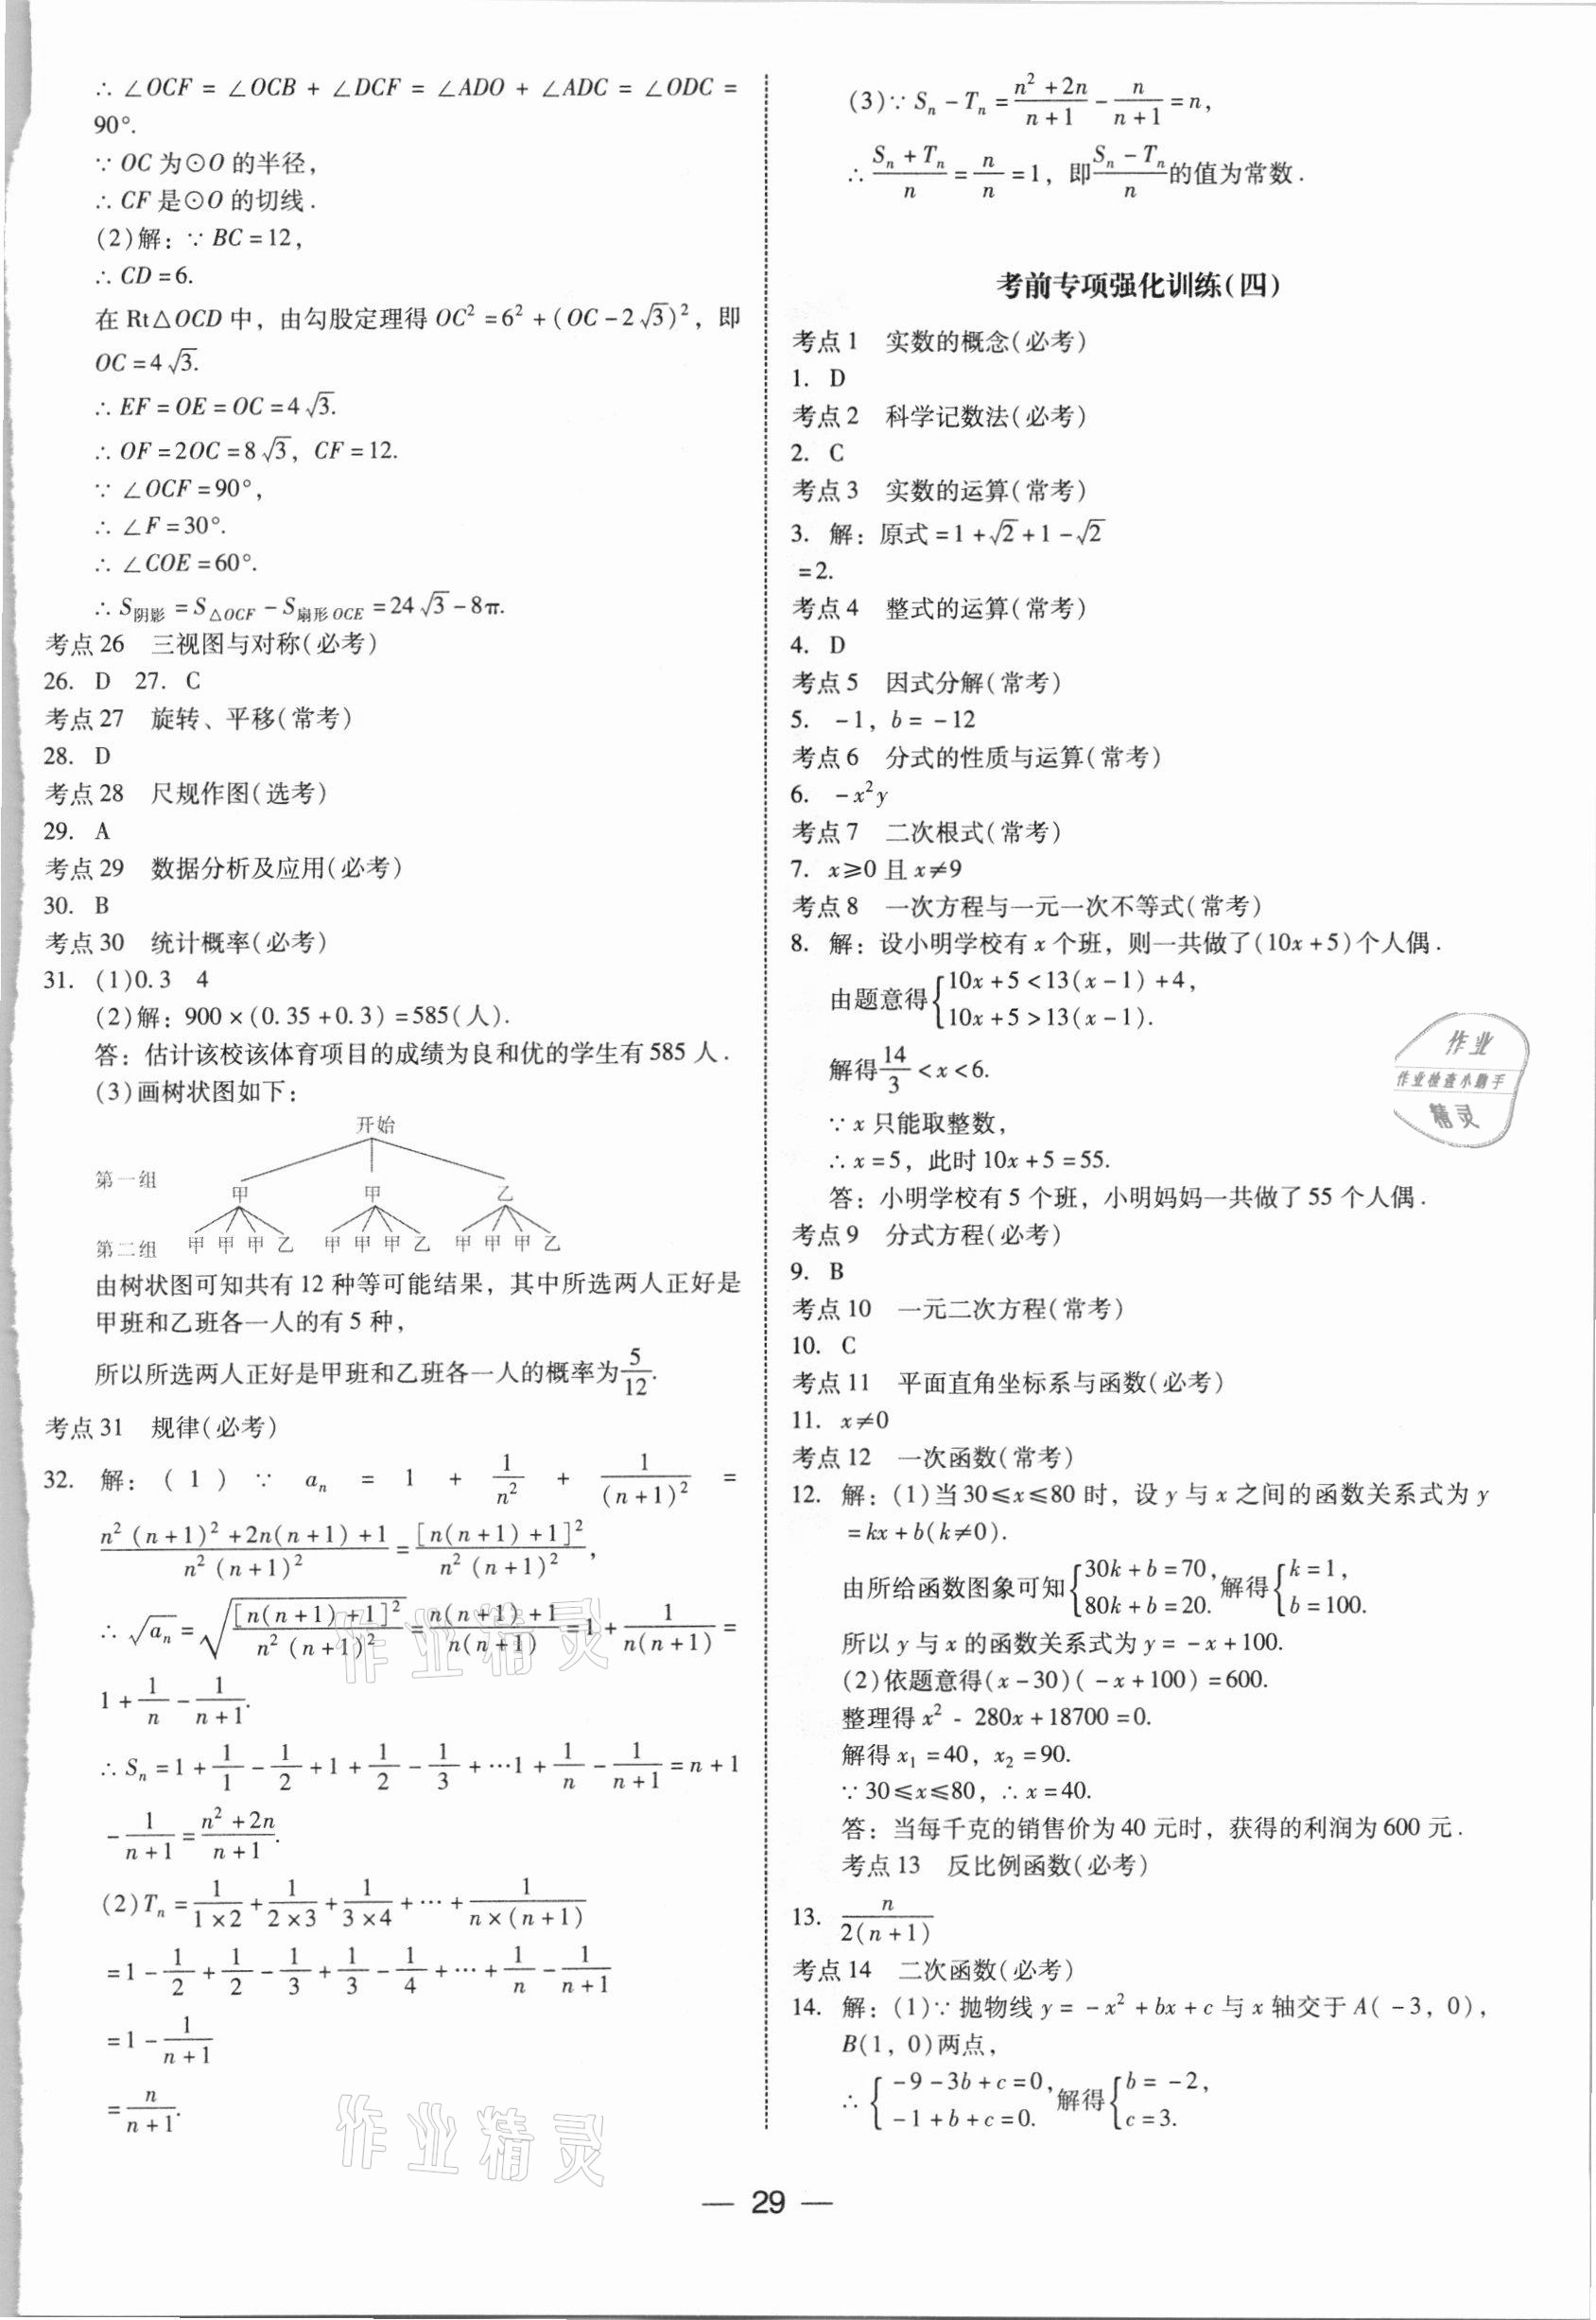 ∴ ∠OCF = ∠OCB + ∠DCF = ∠ADO + ∠ADC = ∠ODC =
90°.
∵ OC 为⊙O 的半径，
∴ CF 是⊙O 的切线.
(2)解：∵ BC=12，
∴ CD=6.
在 Rt△OCD 中，由勾股定理得 OC²=6²+(OC-2√3)²，即
OC=4√3.
∴ EF=OE=OC=4√3.
∴ OF=2OC=8√3，CF=12.
∵ ∠OCF=90°，
∴ ∠F=30°.
∴ ∠COE=60°.
∴ S阴影=S△OCF-S扇形OCE=24√3-8π.
考点26 三视图与对称(必考)
26. D 27. C
考点27 旋转、平移(常考)
28. D
考点28 尺规作图(选考)
29. A
考点29 数据分析及应用(必考)
30. B
考点30 统计概率(必考)
31. (1)0.3 4
(2)解：900×(0.35+0.3)=585(人).
答：估计该校该体育项目的成绩为良和优的学生有585人.
(3)画树状图如下：
开始
第一组 甲 甲 乙
第二组 甲 甲 甲 乙 甲 甲 甲 乙 甲 甲 甲 乙
由树状图可知共有12种等可能结果，其中所选两人正好是
甲班和乙班各一人的有5种，
所以所选两人正好是甲班和乙班各一人的概率为5/12.
考点31 规律(必考)
32. 解：(1)∵ aₙ = 1 + 1/n² + 1/(n+1)² =
[n²(n+1)²+2n(n+1)+1]/[n²(n+1)²] = [n(n+1)+1]²/[n²(n+1)²]，
∴ √aₙ = √([n(n+1)+1]²/[n²(n+1)²]) = [n(n+1)+1]/[n(n+1)] = 1+1/[n(n+1)] =
1+1/n-1/(n+1).
∴ Sₙ=1+1/1-1/2+1+1/2-1/3+…1+1/n-1/(n+1)=n+1
-1/(n+1)=(n²+2n)/(n+1).
(2)Tₙ=1/(1×2)+1/(2×3)+1/(3×4)+…+1/[n×(n+1)]
=1-1/2+1/2-1/3+1/3-1/4+…+1/n-1/(n+1)
=1-1/(n+1)
=n/(n+1).
(3)∵ Sₙ-Tₙ=(n²+2n)/(n+1)-n/(n+1)=n，
∴ (Sₙ+Tₙ)/n=n/n=1，即(Sₙ-Tₙ)/n的值为常数.
考前专项强化训练(四)
考点1 实数的概念(必考)
1. D
考点2 科学记数法(必考)
2. C
考点3 实数的运算(常考)
3. 解：原式=1+√2+1-√2
=2.
考点4 整式的运算(常考)
4. D
考点5 因式分解(常考)
5. -1，b=-12
考点6 分式的性质与运算(常考)
6. -x²y
考点7 二次根式(常考)
7. x⩾0且x≠9
考点8 一次方程与一元一次不等式(常考)
8. 解：设小明学校有x个班，则一共做了(10x+5)个人偶.
由题意得{10x+5<13(x-1)+4，
10x+5>13(x-1).
解得14/3<x<6.
∵ x只能取整数，
∴ x=5，此时10x+5=55.
答：小明学校有5个班，小明妈妈一共做了55个人偶.
考点9 分式方程(必考)
9. B
考点10 一元二次方程(常考)
10. C
考点11 平面直角坐标系与函数(必考)
11. x≠0
考点12 一次函数(常考)
12. 解：(1)当30⩽x⩽80时，设y与x之间的函数关系式为y
=kx+b(k≠0).
由所给函数图象可知{30k+b=70，80k+b=20.解得{k=1，b=100.
所以y与x的函数关系式为y=-x+100.
(2)依题意得(x-30)(-x+100)=600.
整理得x²-280x+18700=0.
解得x₁=40，x₂=90.
∵ 30⩽x⩽80，∴ x=40.
答：当每千克的销售价为40元时，获得的利润为600元.
考点13 反比例函数(必考)
13. n/[2(n+1)]
考点14 二次函数(必考)
14. 解：(1)∵ 抛物线y=-x²+bx+c与x轴交于A(-3，0)，
B(1，0)两点，
∴ {-9-3b+c=0，-1+b+c=0.解得{b=-2，c=3.
作业
作业检查小助手
精灵
作业精灵
作业精灵
— 29 —